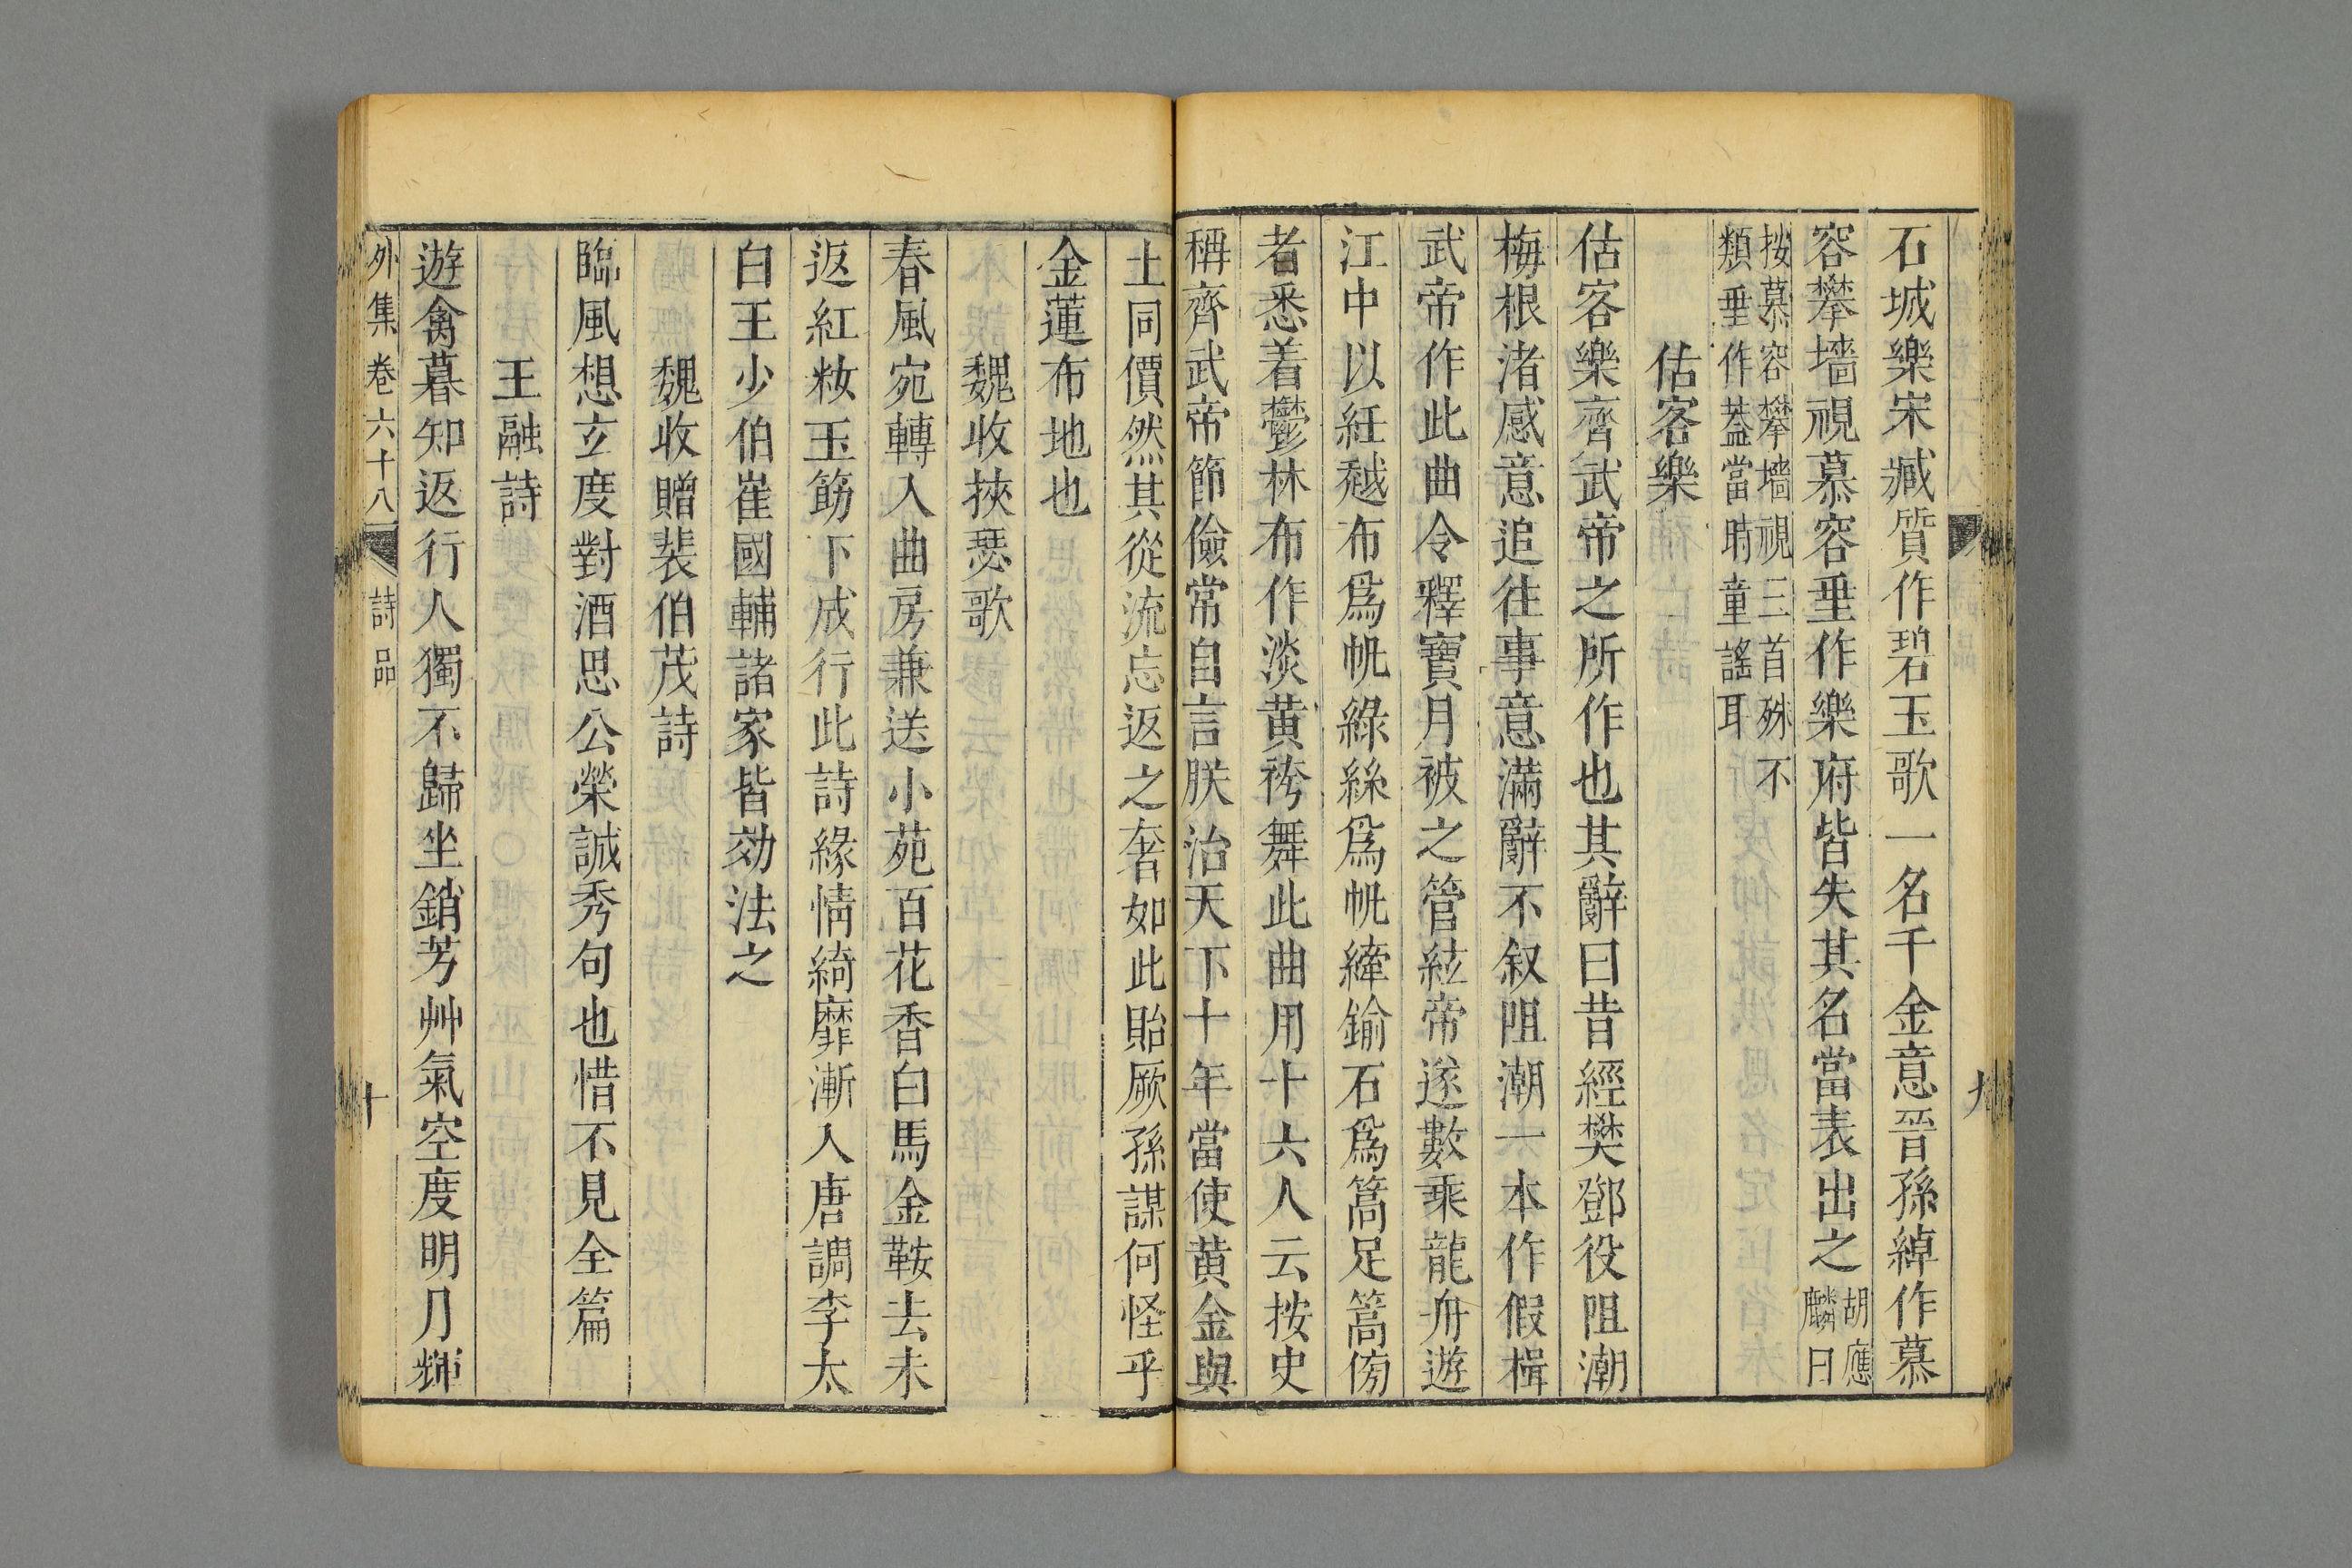 石城樂宋臧質作碧玉歌一名千金意晉孫綽作慕
容攀墻視慕容垂作樂府皆失其名當表出之胡應
麟曰
按慕容攀墻視三首殊不
類垂作葢當時童謠耳
估客樂
估客樂齊武帝之所作也其辭曰昔經樊鄧役阻潮
梅根渚感意追往事意滿辭不叙阻潮一本作假楫
武帝作此曲令釋寶月被之管絃帝遂數乘龍舟遊
江中以紅越布爲帆綠絲爲帆縴鍮石爲篙足篙傍
者悉着鬱林布作淡黄袴舞此曲用十六人云按史
稱齊武帝節儉常自言朕治天下十年當使黄金與
九
土同價然其從流忘返之奢如此貽厥孫謀何怪乎
金蓮布地也
魏收挾瑟歌
春風宛轉入曲房兼送小苑百花香白馬金鞍去未
返紅粧玉筯下成行此詩緣情綺靡漸入唐調李太
白王少伯崔國輔諸家皆効法之
魏收贈裴伯茂詩
臨風想玄度對酒思公榮誠秀句也惜不見全篇
王融詩
遊禽暮知返行人獨不歸坐銷芳艸氣空度明月輝
外集卷六十八 詩品 十